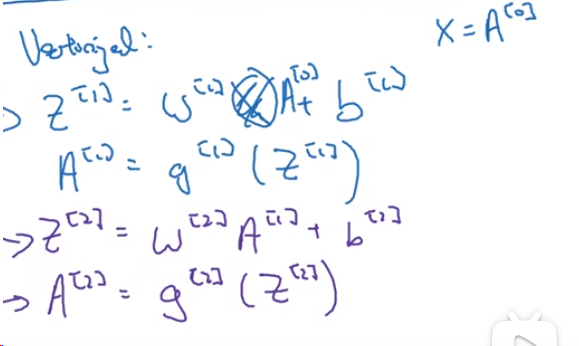 Vectorized:
X = A^[0]
Z^[1] = W^[1] A^[0] + b^[1]
A^[1] = g^[1] (Z^[1])
→ Z^[2] = W^[2] A^[1] + b^[2]
→ A^[2] = g^[2] (Z^[2])